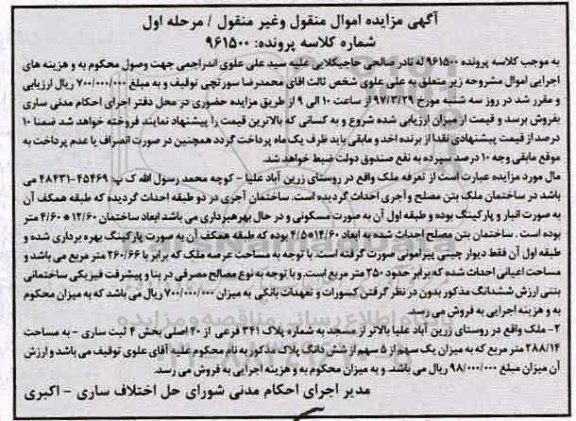 آگهی مزایده اموال منقول وغیر منقول / مرحله اول
شماره کلاسه پرونده: ۹۶۱۵۰۰
به موجب کلاسه پرونده ۹۶۱۵۰۰ له نادر صالحی حاجیکلایی علیه سید علی علوی اندراجمی جهت وصول محکوم به و هزینه های
اجرایی اموال مشروحه زیر متعلق به علی علوی شخص ثالث اقای محمدرضا سورتچی توقیف و به مبلغ ۷۰۰/۰۰۰/۰۰۰ ریال ارزیابی
و مقرر شد در روز سه شنبه مورخ ۹۷/۳/۲۹ از ساعت ۱۰ الی ۹ از طریق مزایده حضوری در محل دفتر اجرای احکام مدنی ساری
بفروش برسد و قیمت از میزان ارزیابی شده شروع و به کسانی که بالاترین قیمت را پیشنهاد نمایند فروخته خواهد شد ضمنا ۱۰
درصد از قیمت پیشنهادی نقدا از برنده اخذ و مابقی باید ظرف یک ماه پرداخت گردد همچنین در صورت انصراف یا عدم پرداخت به
موقع مابقی وجه ۱۰ درصد سپرده به نفع صندوق دولت ضبط خواهد شد.
مال مورد مزایده عبارت است از تعرفه ملک واقع در روستای زرین آباد علیا - کوچه محمد رسول الله ک پ ۴۵۴۶۹-۴۸۴۳۱ می
باشد در ساختمان ملک بتن مصلح و آجری احداث گردیده است. ساختمان آجری در دو طبقه احداث گردیده که طبقه همکف آن
به صورت انبار و پارکینگ بوده و طبقه اول آن به صورت مسکونی و در حال بهره برداری می باشد ابعاد ساختمان ۱۲/۶۰ * ۴/۶۰ متر
بوده است . ساختمان بتن مصلح احداث شده به ابعاد ۱۴/۶۰*۴/۵ بوده که طبقه همکف آن به صورت پارکینگ بهره برداری شده و
طبقه اول آن فقط دیوار چینی پیرامونی صورت گرفته است. با توجه به مساحت عرصه ملک که برابر با ۲۶۰/۶۶ متر مربع می باشد و
مساحت اعیانی احداث شده که برابر حدود ۲۵۰ متر مربع است. و با توجه به نوع مصالح مصرفی در بنا و پیشرفت فیزیکی ساختمانی
بتنی ارزش ششدانگ مذکور بدون در نظر گرفتن کسورات و تعهدات بانکی به میزان ۷۰۰/۰۰۰/۰۰۰ ریال می باشد که به میزان محکوم
به و هزینه اجرایی به فروش می رسد.
۲- ملک واقع در روستای زرین آباد علیا بالاتر از مسجد به شماره پلاک ۳۴۱ فرعی از ۴۰ اصلی بخش ۴ ثبت ساری - به مساحت
۲۸۸/۱۴ متر مربع که به میزان یک سهم از ۵ سهم از شش دانگ پلاک مذکور به نام محکوم علیه آقای علوی توقیف می باشد و ارزش
آن میزان مبلغ ۹۸/۰۰۰/۰۰۰ ریال می باشد. و به میزان محکوم به و هزینه اجرایی به فروش می رسد.
مدیر اجرای احکام مدنی شورای حل اختلاف ساری - اکبری